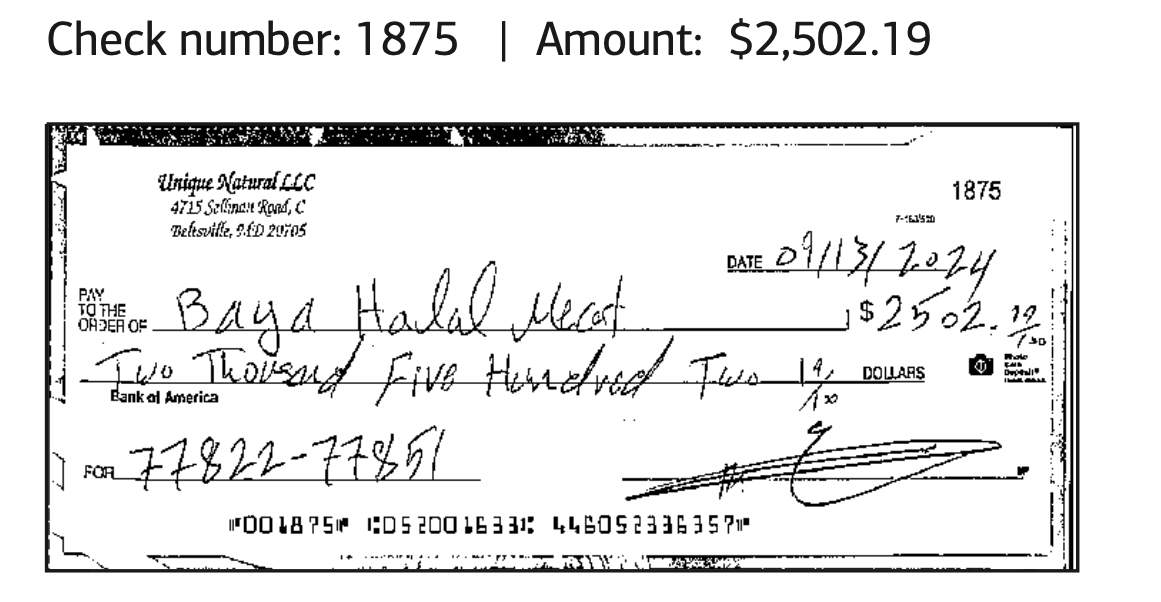 Check number: 1875 | Amount: $2,502.19
Unique Natural LLC
1875
4715 Sellman Road, C
Beltsville, MD 20705
DATE 09/13/2024
PAY TO THE ORDER OF Baya Halal Mecat $2502. 19/100
Two Thousand Five Hundred Two 19/100 DOLLARS
Photo Safe Deposit®
Bank of America
FOR 77822-77851
MP
⑈001875⑈ ⑆052001633⑆ 446052336357⑈